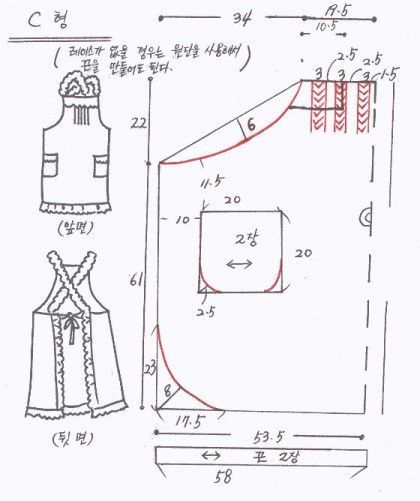 C 형
( 레이스가 없을 경우는 원단을 사용해서
끈을 만들어도 된다. )
34
19.5
10.5
2.5
2.5
3 3 3 1.5
22
6
11.5
(앞면)
20
10
2장
20
2.5
61
23
8
17.5
53.5
(뒷면)
끈 2장
58